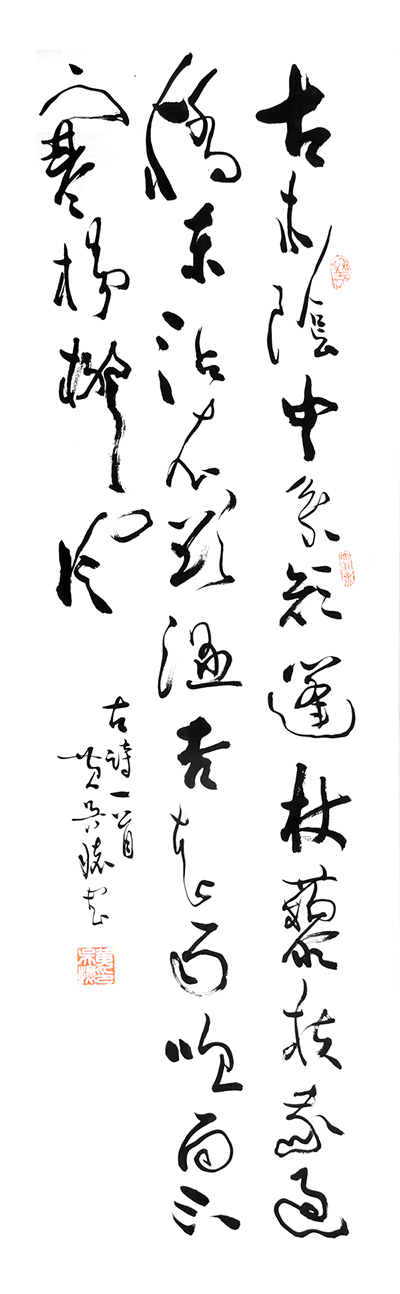 古木陰中系短篷杖藜扶我過
橋東沾衣欲濕杏花雨吹面不
寒楊柳風
古詩一首
黃吳懷書